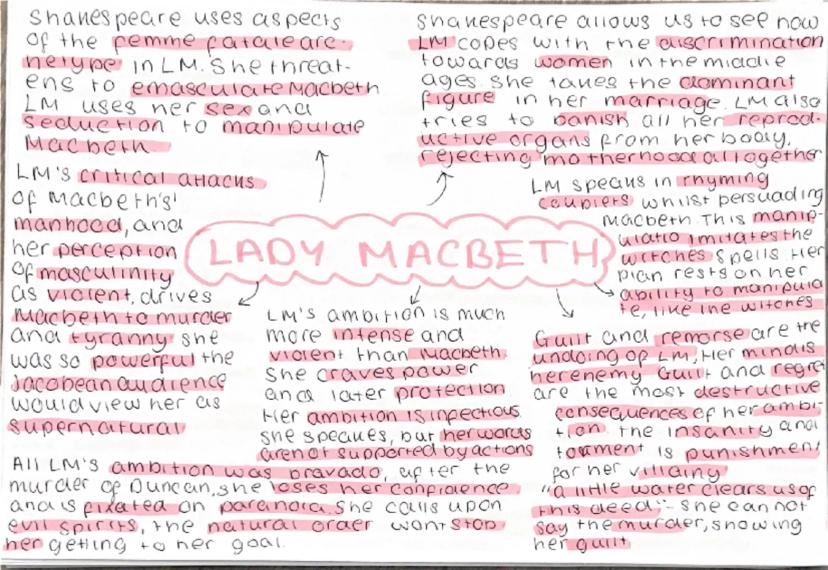 Shakespeare uses aspects
of the femme fatale arc-
hetype in LM. She threat-
ens to emasculate Macbeth
LM uses her sex and
seduction to manipulate
Macbeth
Shakespeare allows us to see how
LM copes with the discrimination
towards women in the middle
ages. She takes the dominant
figure in her marriage. LM also
tries to banish all her reprod-
uctive organs from her body,
rejecting motherhood altogether
LM's critical attacks
of Macbeth's'
manhood, and
her perception
of masculinity
as violent, drives
Macbeth to murder
and tyranny she
was so powerful the
Jacobean audience
would view her as
supernatural
LADY MACBETH
LM speaks in rhyming
couplets whilst persuading
Macbeth. This manip-
ulatio imitates the
witches spells. Her
plan rests on her
ability to manipula
te, like the witches
LM's ambition is much
more intense and
violent than Macbeth.
She craves power
and later protection
Her ambition is infectious
she speakes, but her words
are not supported by actions
Guilt and remorse are the
undoing of LM, Her mind is
her enemy Guilt and regre
are the most destructive
consequences of her ambi-
tion. the insanity and
torment is punishment
for her villainy
"a little water clears us of
this deed"- she can not
say the murder, showing
her guilt
All LM's ambition was bravado, after the
murder of Duncan, she loses her confidence
and is fixated on paranoia. She calls upon
evil spirits, the natural order wont stop
her getting to her goal.